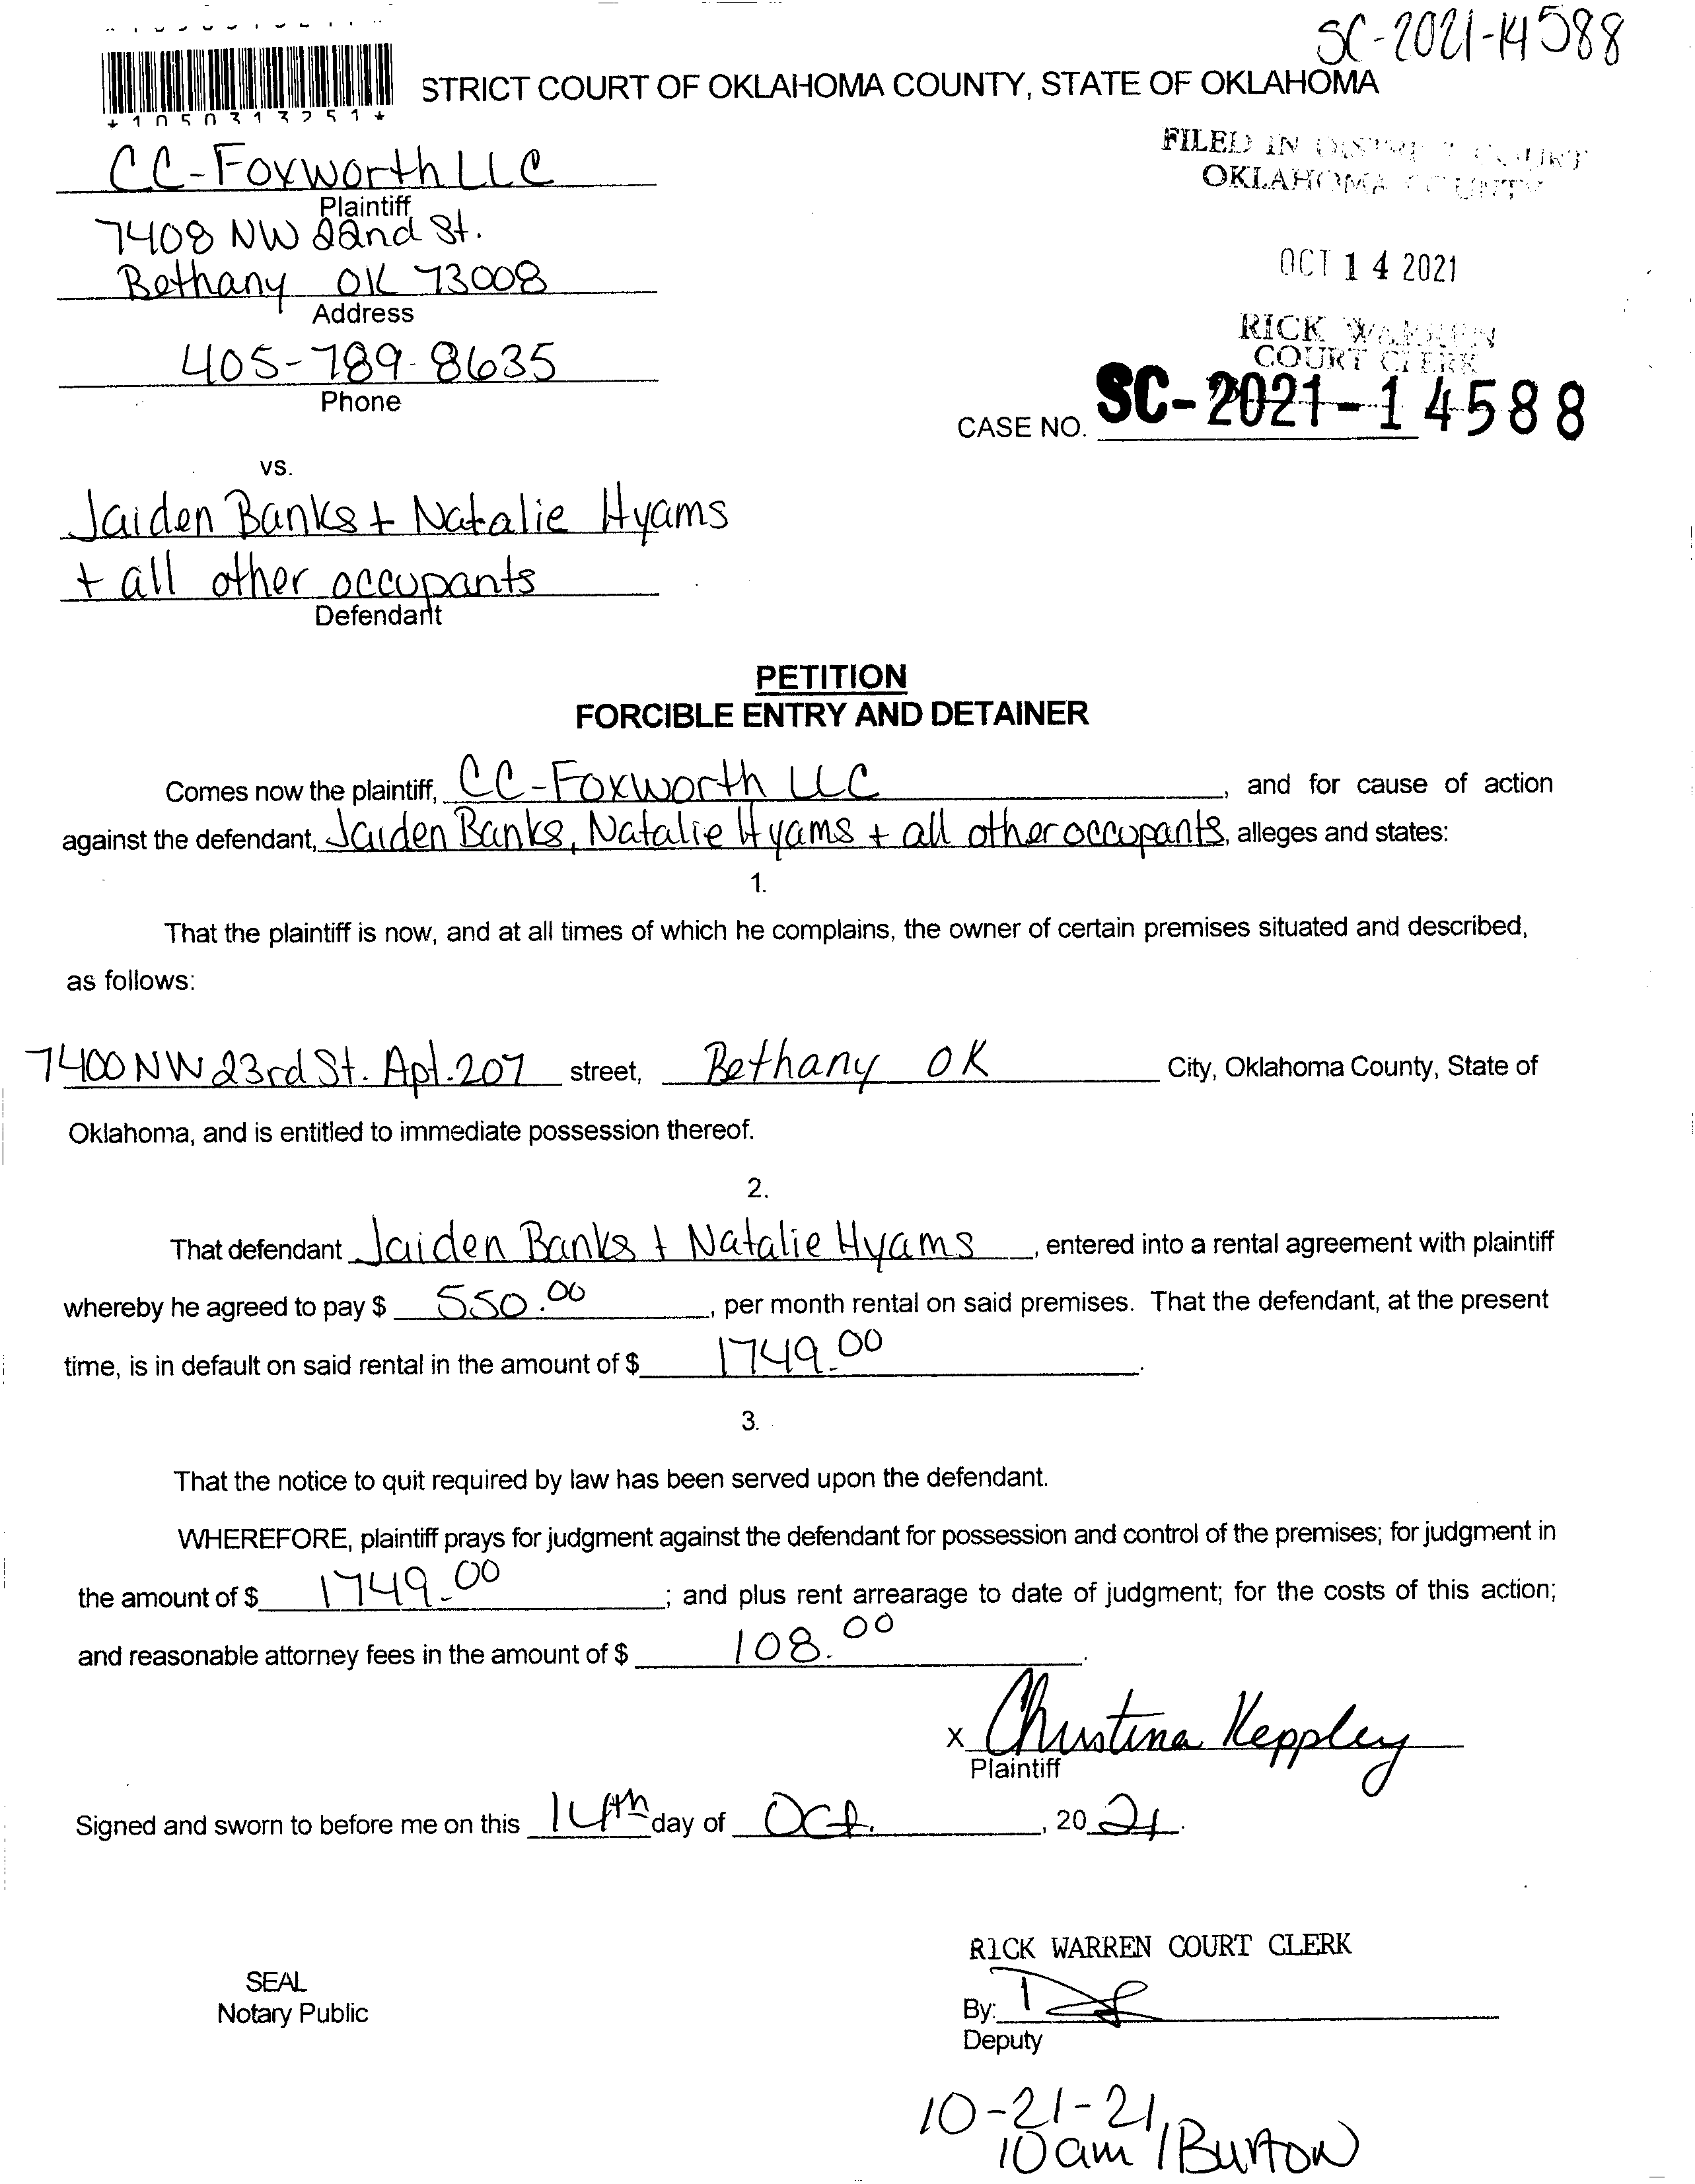 SC-2021-14588
STRICT COURT OF OKLAHOMA COUNTY, STATE OF OKLAHOMA
*1050313251*
FILED IN DISTRICT COURT
OKLAHOMA COUNTY
CC-Foxworth LLC
Plaintiff
7408 NW 22nd St.
Bethany OK 73008
Address
OCT 14 2021
405-789-8635
Phone
RICK WARREN
COURT CLERK
CASE NO. SC-2021-14588
vs.
Jaiden Banks + Natalie Hyams
+ all other occupants
Defendant
PETITION
FORCIBLE ENTRY AND DETAINER
Comes now the plaintiff, CC-Foxworth LLC, and for cause of action
against the defendant, Jaiden Banks, Natalie Hyams + all other occupants, alleges and states:
1.
That the plaintiff is now, and at all times of which he complains, the owner of certain premises situated and described,
as follows:
7400 NW 23rd St. Apt. 207 street, Bethany OK City, Oklahoma County, State of
Oklahoma, and is entitled to immediate possession thereof.
2.
That defendant Jaiden Banks + Natalie Hyams, entered into a rental agreement with plaintiff
whereby he agreed to pay $ 550.00, per month rental on said premises. That the defendant, at the present
time, is in default on said rental in the amount of $ 1749.00.
3.
That the notice to quit required by law has been served upon the defendant.
WHEREFORE, plaintiff prays for judgment against the defendant for possession and control of the premises; for judgment in
the amount of $ 1749.00; and plus rent arrearage to date of judgment; for the costs of this action;
and reasonable attorney fees in the amount of $ 108.00.
x Christina Keppley
Plaintiff
Signed and sworn to before me on this 14th day of Oct., 2021.
RICK WARREN COURT CLERK
SEAL
Notary Public
By:
Deputy
10-21-21
10am / Burton